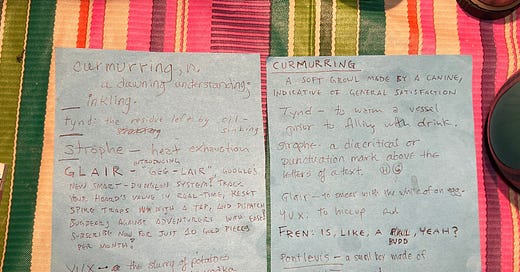 curmurring, n.
a dawning understanding;
inkling.
tynd: the residue left by oil-
sinking
Strophe – heat exhaustion
INTRODUCING
GLAIR – "GEG-LAIR", GOOGLE'S
NEW SMART-DUNGEON SYSTEM! TRACK
YOUR HOARD'S VALUE IN REAL-TIME, RESET
SPIKE TRAPS WITH A TAP, AND DISPATCH
BUGBEARS AGAINST ADVENTURERS WITH EASE!
SUBSCRIBE NOW FOR JUST 20 GOLD PIECES
PER MONTH!
YUX – the slurry of potatoes
CURMURRING
A SOFT GROWL MADE BY A CANINE,
INDICATIVE OF GENERAL SATISFACTION
Tynd – to warm a vessel
prior to filling with drink.
Strophe – a diacritical or
punctuation mark above the
letters of a text.
Glair – to smear with the white of an egg.
YUX: to hiccup
FREN: IS, LIKE, A PAL, YEAH?
BUDD
Pontlevis – a smaller made of